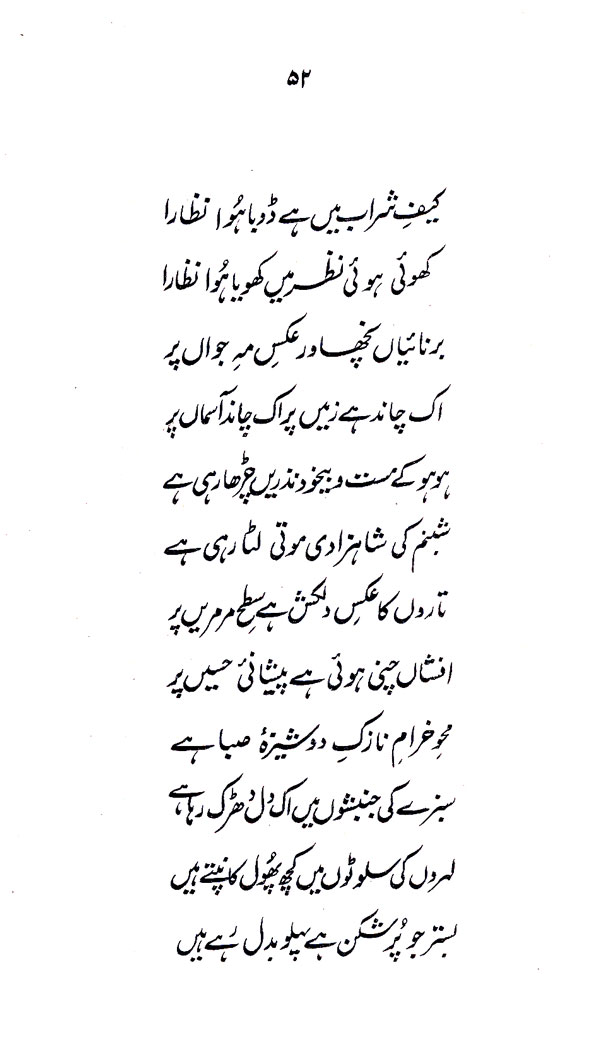 ۵۲
کیفِ شراب میں ہے ڈوبا ہُوا نظارا
کھوئی ہوئی نظر میں کھویا ہُوا نظارا
برنائیاں نچھاور عکسِ مہِ جواں پر
اک چاند ہے زمیں پر اک چاند آسماں پر
ہو ہو کے مست و بیخود نذریں چڑھا رہی ہے
شبنم کی شاہزادی موتی لٹا رہی ہے
تاروں کا عکسِ دلکش ہے سطحِ مرمریں پر
افشاں چنی ہوئی ہے پیشانئ حسیں پر
محوِ خرامِ نازک دوشیزۂ صبا ہے
سبزے کی جنبشوں میں اک دل دھڑک رہا ہے
لہروں کی سلوٹوں میں کچھ پھُول کانپتے ہیں
بستر جو پُر شکن ہے پہلو بدل رہے ہیں